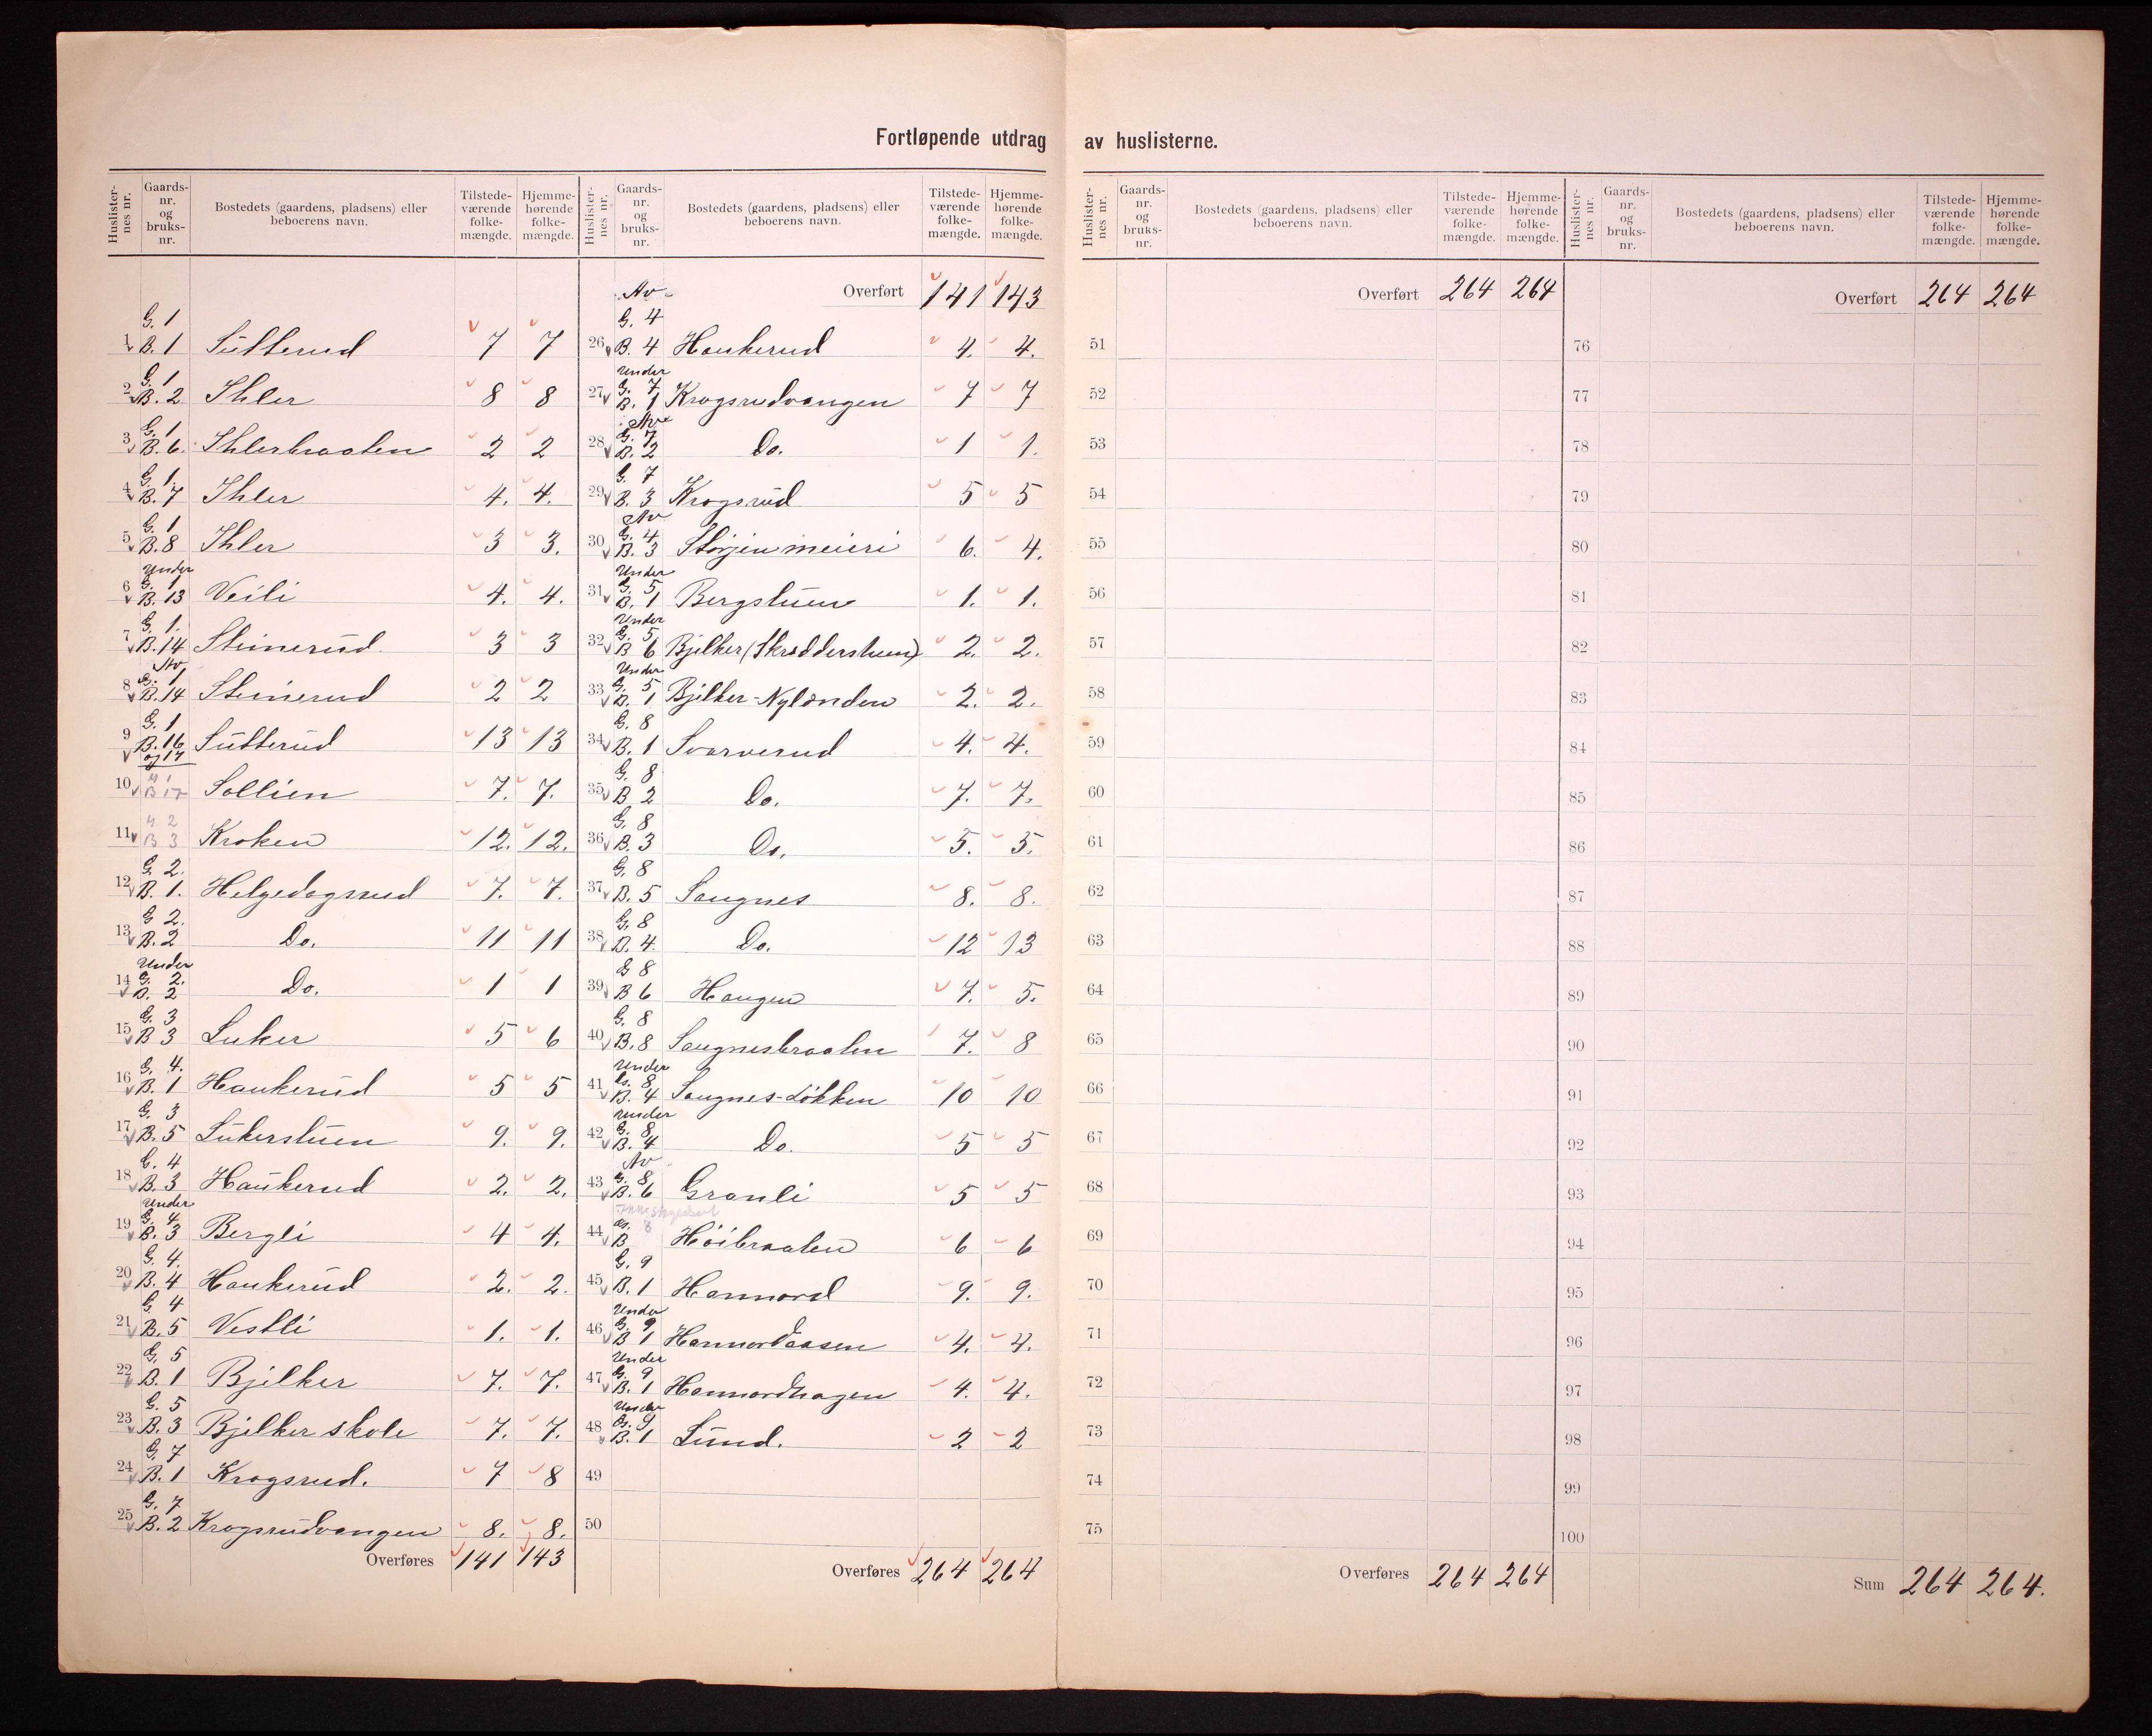 Fortløpende utdrag av huslisterne.
Huslister-nes nr. Gaards-nr. og bruks-nr. Bostedets (gaardens, pladsens) eller beboerens navn. Tilstede-værende folke-mængde. Hjemme-hørende folke-mængde.
1 G. 1 B. 1 Sutterud 7 7
2 G. 1 B. 2 Ihler 8 8
3 G. 1 B. 6. Ihlerbraaten 2 2
4 G. 1. B. 7 Ihler 4. 4.
5 G. 1 B. 8 Ihler 3 3.
6 Under G. 1 B. 13 Veili 4. 4.
7 G. 1. B. 14 Steinerud 3 3
8 Av G. 1 B. 14 Steinerud 2 2
9 G. 1 B. 16 og 17 Sutterud 13 13
10 Sollien 7. 7.
11 G 2 B 3 Kroken 12. 12.
12 G. 2. B. 1. Helgedagsrud 7. 7.
13 G 2. B. 2 Do. 11 11
14 Under G. 2. B. 2 Do. 1 1
15 G. 3 B 3 Luker 5 6
16 G. 4. B. 1 Haukerud 5 5
17 G. 3 B. 5 Lukerstuen 9. 9.
18 G. 4 B. 3 Haukerud 2. 2.
19 Under G. 4 B. 3 Bergli 4 4.
20 G. 4. B. 4 Haukerud 2. 2.
21 G. 4 B. 5 Vestli 1. 1.
22 G. 5 B. 1 Bjelker 7. 7.
23 G. 5 B. 3 Bjelker skole 7. 7.
24 G. 7 B. 1 Krogsrud. 7 8
25 G. 7 B. 2 Krogsrudvangen 8. 8.
Overføres 141 143
Huslister-nes nr. Gaards-nr. og bruks-nr. Bostedets (gaardens, pladsens) eller beboerens navn. Tilstede-værende folke-mængde. Hjemme-hørende folke-mængde.
Overført 141 143
26 Av G. 4 B. 4 Haukerud 4. 4.
27 Under G. 7 B. 1 Krogsrudvangen 7 7
28 Av G. 7 B. 2 Do. 1 1.
29 G. 7 B. 3 Krogsrud 5 5
30 Av G. 4 B. 3 Storjen meieri 6. 4.
31 Under G. 5 B. 1 Bergstuen 1. 1.
32 Under G. 5 B 6 Bjelker (Skredderstuen) 2. 2.
33 Under G. 5 B. 1 Bjelker-Nylænden 2. 2.
34 G. 8 B. 1 Svarverud 4. 4.
35 G. 8 B 2 Do. 7. 7.
36 G. 8 B. 3 Do. 5. 5.
37 G. 8 B. 5 Saugnes 8. 8.
38 G. 8 B. 4. Do. 12 13
39 G 8 B 6 Haugen 7. 5.
40 G. 8 B. 8 Saugnesbraaten 7. 8
41 Under G. 8 B. 4 Saugnes-Løkken 10 10
42 Under G. 8 B. 4 Do. 5 5
43 Av G. 8 B. 6 Granli 5 5
44 G. 8 B Höibraaten 6 6
45 G. 9 B. 1 Hannord 9. 9.
46 Under G. 9 B 1 Hannordaasen 4. 4.
47 Under G. 9 B. 1 Hannordhagen 4. 4.
48 Under G. 9 B. 1 Lund. 2 2
49
50
Overføres 264 264
Huslister-nes nr. Gaards-nr. og bruks-nr. Bostedets (gaardens, pladsens) eller beboerens navn. Tilstede-værende folke-mængde. Hjemme-hørende folke-mængde.
Overført 264 264
51
52
53
54
55
56
57
58
59
60
61
62
63
64
65
66
67
68
69
70
71
72
73
74
75
Overføres 264 264
Huslister-nes nr. Gaards-nr. og bruks-nr. Bostedets (gaardens, pladsens) eller beboerens navn. Tilstede-værende folke-mængde. Hjemme-hørende folke-mængde.
Overført 264 264
76
77
78
79
80
81
82
83
84
85
86
87
88
89
90
91
92
93
94
95
96
97
98
99
100
Sum 264 264.